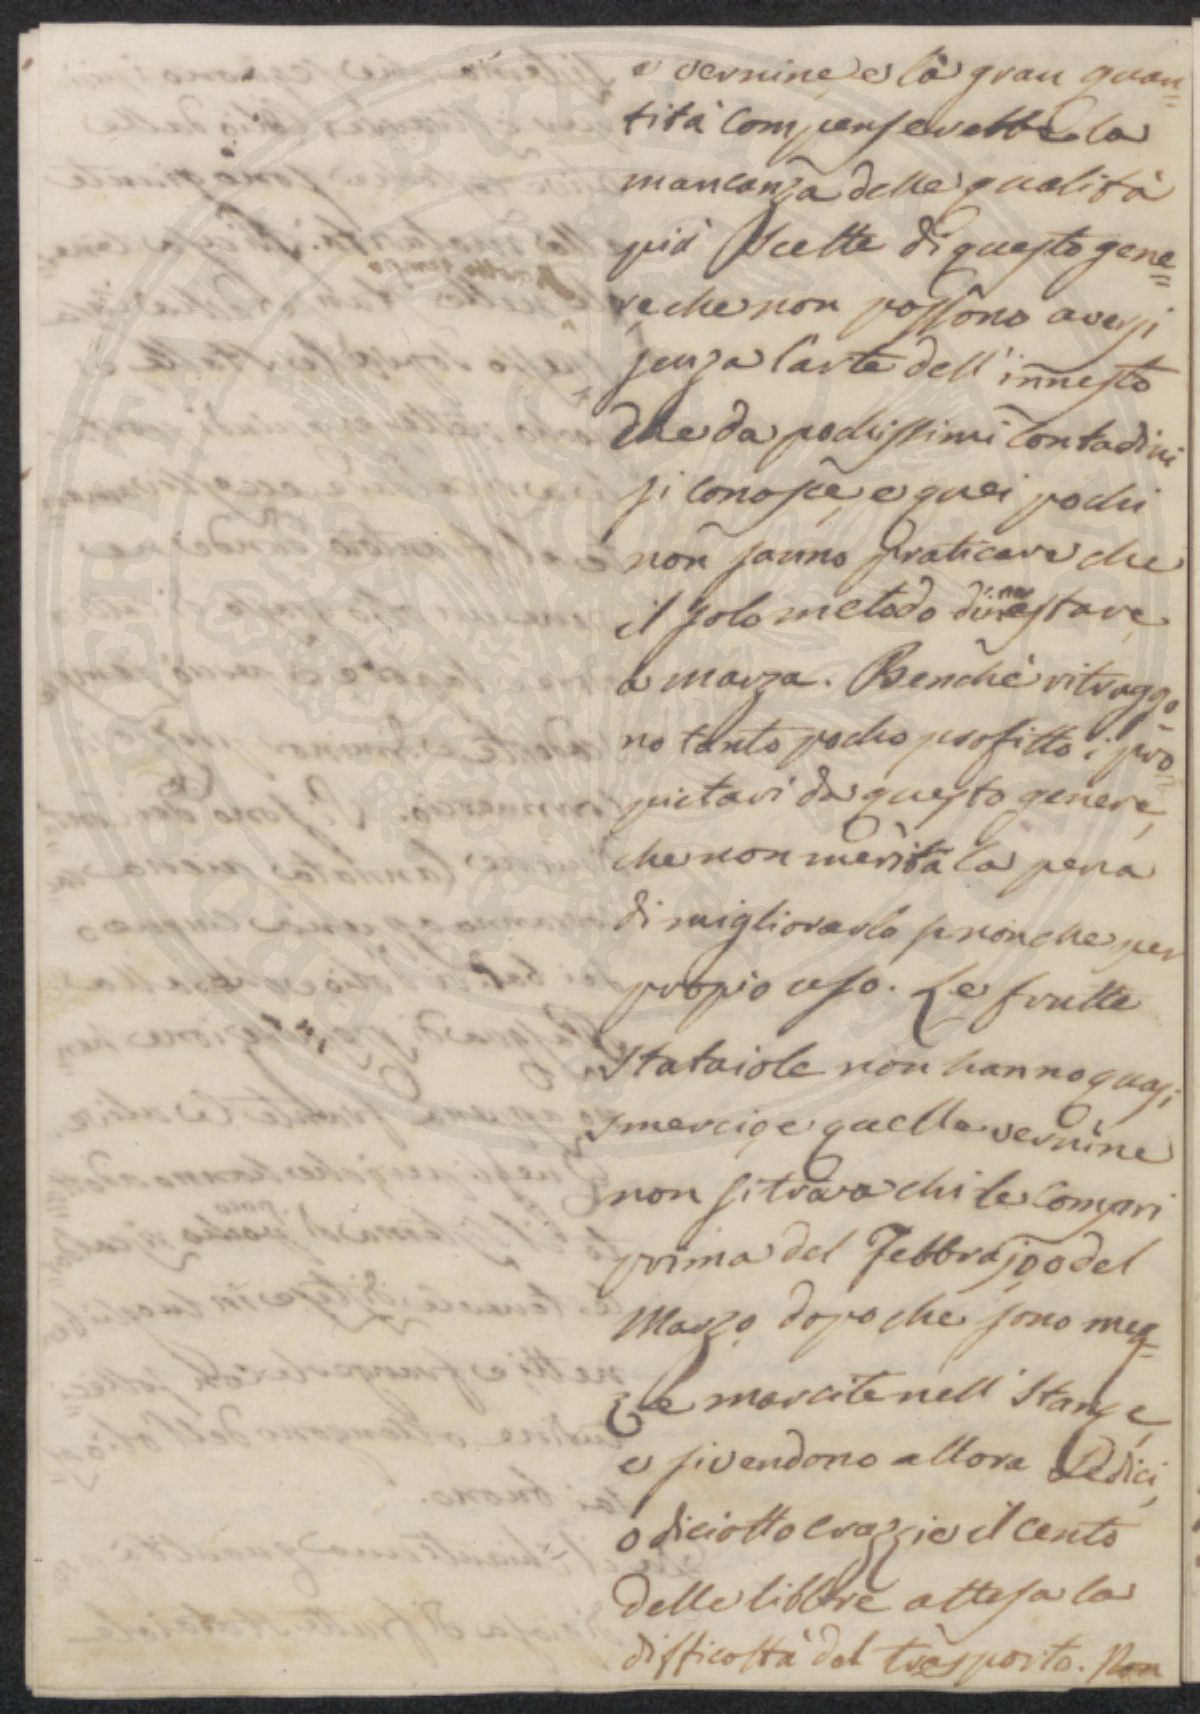 e vernine, e la gran quan=
tità compenserebbe la
mancanza delle qualità
più scelte di questo gene=
re che non possono aversi
senza l'arte dell'innesto
che da pochissimi contadini
si conosce, e quei pochi
non sanno praticare che
il solo metodo d'innestare
a marza. Benchè ritraggo=
no tanto poco profitto i pro=
pietari da questo genere,
che non merita la pena
di migliorarlo se non che per
propio uso. Le frutte
stataiole non hanno quasi
smercio, e quelle vernine
non si trova chi le compri
prima del Febbrajo, o del
Marzo dopo che sono mez=
ze marcite nell'stanze,
e si vendono allora sedici,
o diciotto crazzie il cento
delle libbre attesa la
difficoltà del trasporto. Non